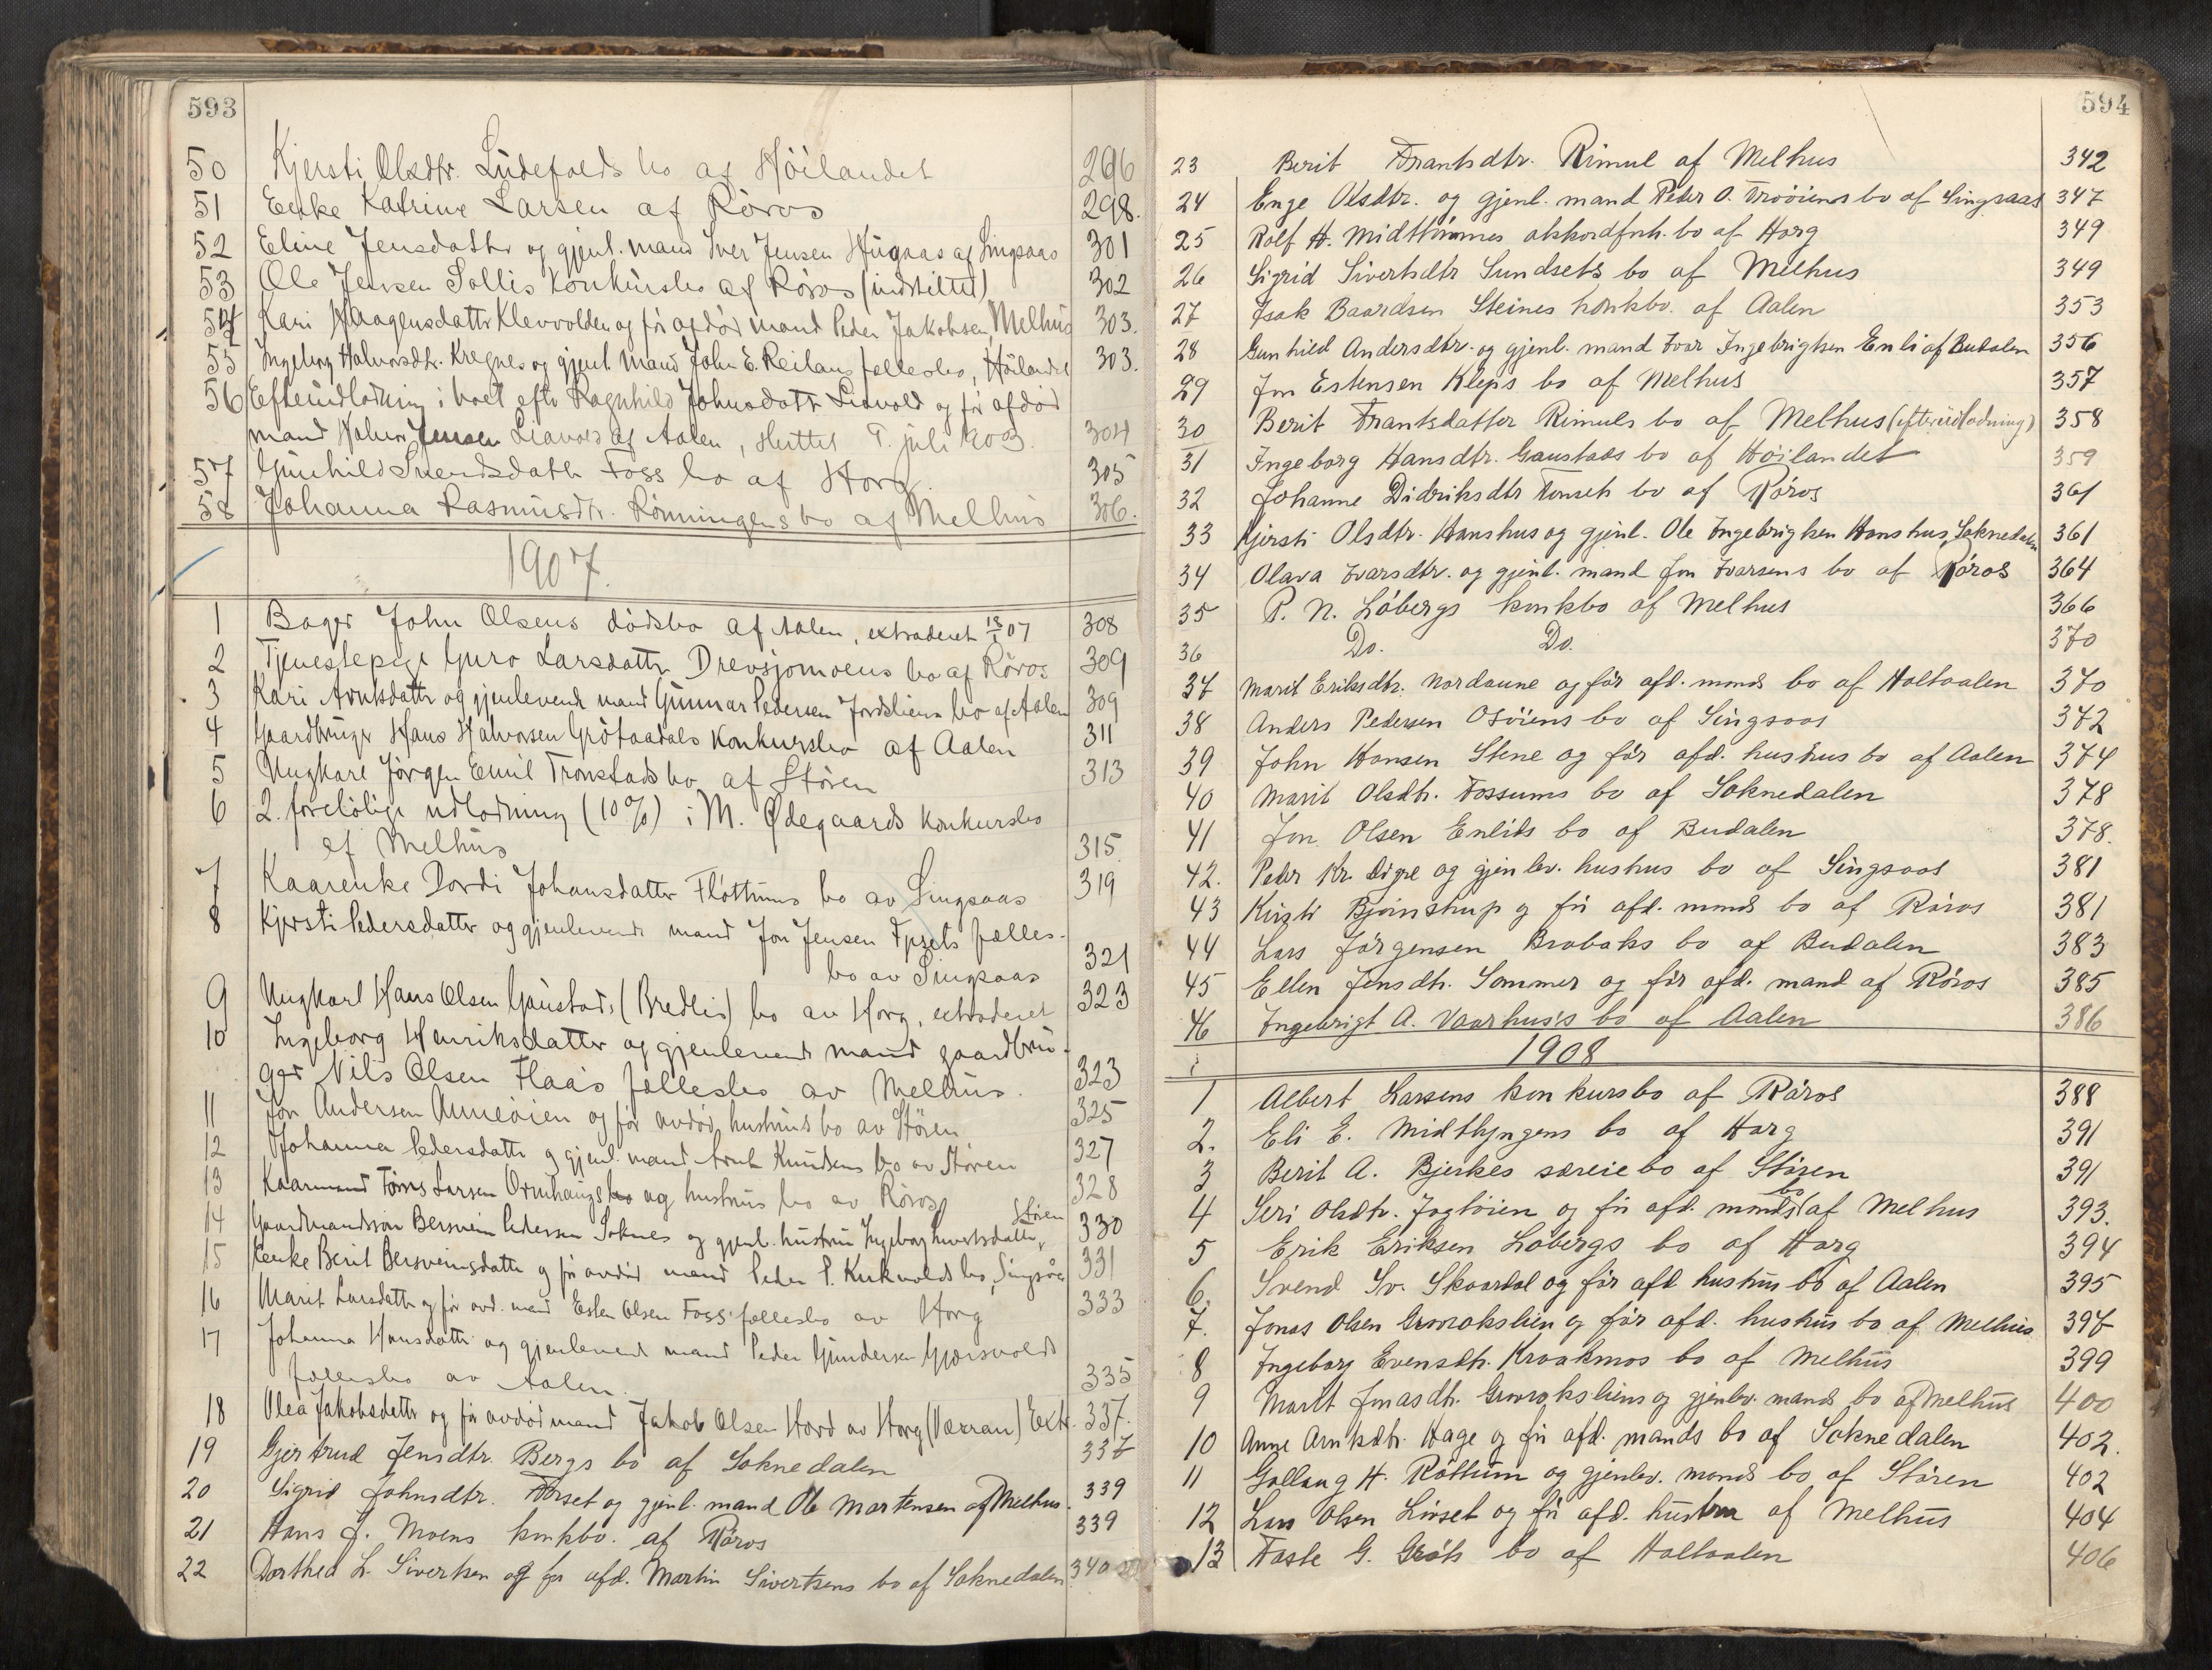 593
50 Kjersti Olsdtr. Lüdefalds bo af Höilandet 296
51 Enke Katrine Larsen af Röros 298.
52 Eline Jensdatter og gjenl. mand Iver Jensen Hügaas af Singsaas 301
53 Ole Jensen Sollis Konkürsbo af Röros (indstillet) 302
54 Kari Haagensdatter Klevvolden og før afdød mand Peder Jakobsen, Melhüs 303.
55 Ingeborg Halvorsdtr. Kregnes og gjenl. mand John E. Reitans fællesbo, Hölandet 303.
56 Efterüdlodning i boet efter Ragnhild Johnsdatter Liavold og før afdød
mand Halvor Jensen Liavold af Aalen, sluttet 9. juli 1903. 304
57 Günhild Svendsdatter Foss bo af Horg. 305
58 Johanna Rasmüsdtr. Rønningens bo af Melhüs 306.
1907.
1 Bager John Olsens dødsbo af Aalen, extraderet 18/1 07 308
2 Tjenestepige Guro Larsdatter Drevsjømoens bo af Röros 309
3 Kari Arntsdatter og gjenlevende mand Günnar Pedersen Jordsliens bo af Aalen 309
4 Gaardbrüger Hans Halvorsen Grötaadals Konkursbo af Aalen 311
5 Ungkarl Jörgen Emil Tronstads bo af Stören 313
6 2. foreløbige udlodning (10%) i M. Ødegaards Konkursbo
af Melhüs 315.
7 Kaarenke Dordi Johansdatter Fløttums bo av Singsaas 319
8 Kjersti Pedersdatter og gjenlevende mand Jon Jensen Fpsets fælles-
bo av Singsaas 321
9 Ungkarl Hans Olsen Gaustad, (Bredli) bo av Horg, extraderet 323
10 Ingeborg Henriksdatter og gjenlevende mand gaardbrü-
ger Nils Olsen Flaas fællesbo av Melhus. 323
11 Jon Andersen Anneöien og før avdød hustrüs bo av Stören 325
12 Johanna Pedersdatter og gjenl. mand Arnt Knudsens bo av Stören 327
13 Kaarmand Töns Larsen Ormhaugs og hustrus bo av Röros 328
14 Gaardmandsson Bersvein Pedersen Soknes og gjenl. hüstrü Ingeborg Sivertsdatter, Støren 330
15 Kaarenke Berit Bersveinsdatter og før avdød mand Peder P. Kirkvolds bo, Singsås 331
16 Marit Larsdatter og før avd. mand Esten Olsen Foss fællesbo av Horg 333
17 Johanna Hansdatter og gjenlevende mand Peder Gündersen Gjærsvolds
fællesbo av Aalen. 335
18 Olea Jakobsdatter og før avdød mand Jakob Olsen Hovd av Horg (Værran) Extr. 337.
19 Gjertrud Jensdtr. Bergs bo af Soknedalen 337
20 Sigrid Johnsdtr. Forset og gjenl. mand Ole Martensen af Melhus. 339
21 Hans J. Moens konkbo. af Röros 339
22 Dorthea L. Sivertsen og før afd. Martin Sivertsens bo af Soknedalen 340
594
23 Berit Frantsdtr. Rimul af Melhus 342
24 Enge Olsdtr. og gjenl. mand Peder O. Trøöiens bo af Singsaas 347
25 Rolf H. Midttömmes akkordforh. bo af Horg 349
26 Sigrid Sivertsdtr Sundsets bo af Melhus 349
27 Isak Baardsen Steines konkbo. af Aalen 353
28 Gunhild Andersdtr. og gjenl. mand Ivar Ingebrigtsen Enli af Budalen 356
29 Jon Estensen Kleps bo af Melhus 357
30 Berit Frantsdatter Rimuls bo af Melhus (efterüdlodning) 358
31 Ingeborg Hansdtr. Gaustads bo af Höilandet 359
32 Johanne Didriksdtr Tonseth bo af Röros 361
33 Kjersti Olsdtr. Hanshus og gjenl. Ole Ingebrigtsen Hanshus, Soknedalen 361
34 Olava Ivarsdtr. og gjenl. mand Jon Ivarsens bo af Röros 364
35 P. N. Löbergs konkbo af Melhus 366
36 Do. Do. 370
37 Marit Eriksdtr. Nordaune og før afd. mands bo af Holtaalen 370
38 Anders Pedersen Osöiens bo af Singsaas 372
39 John Hansen Stene og før afd. hustrus bo af Aalen 374
40 Marit Olsdtr. Fossums bo af Soknedalen 378
41 Jon Olsen Enlids bo af Budalen 378.
42. Peder Kr. Digre og gjenlev. hustrus bo af Singsaas 381
43 Kirsti Bjørnstrup og før afd. mands bo af Röros 381
44 Lars Jörgensen Brobaks bo af Budalen 383
45 Ellen Jensdtr. Sommer og før afd. mand af Röros 385
46 Ingebrigt A. Vaarhus's bo af Aalen 386
1908
1 Albert Larsens konkursbo af Röros 388
2. Eli E. Midtlyngens bo af Horg 391
3 Berit A. Bjerkes særeiebo af Stören 391
4 Seri Olsdtr. Jagtöien og før afd. mands bo af Melhus 393.
5 Erik Eriksen Löbergs bo af Horg 394
6. Svend Sv. Skaardal og før afd hustrüs bo af Aalen 395
7. Jonas Olsen Gravrakslien og før afd. hustrüs bo af Melhus 397
8 Ingeborg Evensdtr. Kraakmos bo af Melhüs 399
9 Marit Jonasdtr. Gravraksliens og gjenlev. mands bo af Melhüs 400
10 Anne Arntsdtr. Hage og før afd. mands bo af Soknedalen 402.
11 Gollaug H. Røttüm og gjenlev. mands bo af Støren 402
12 Lars Olsen Linset og før afd. hustru af Melhüs 404
13 Faste G. Gröts bo af Holtaalen 406